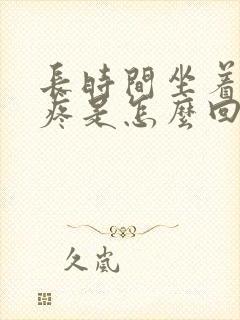 長時間坐着
疼是怎麼回
久嵐